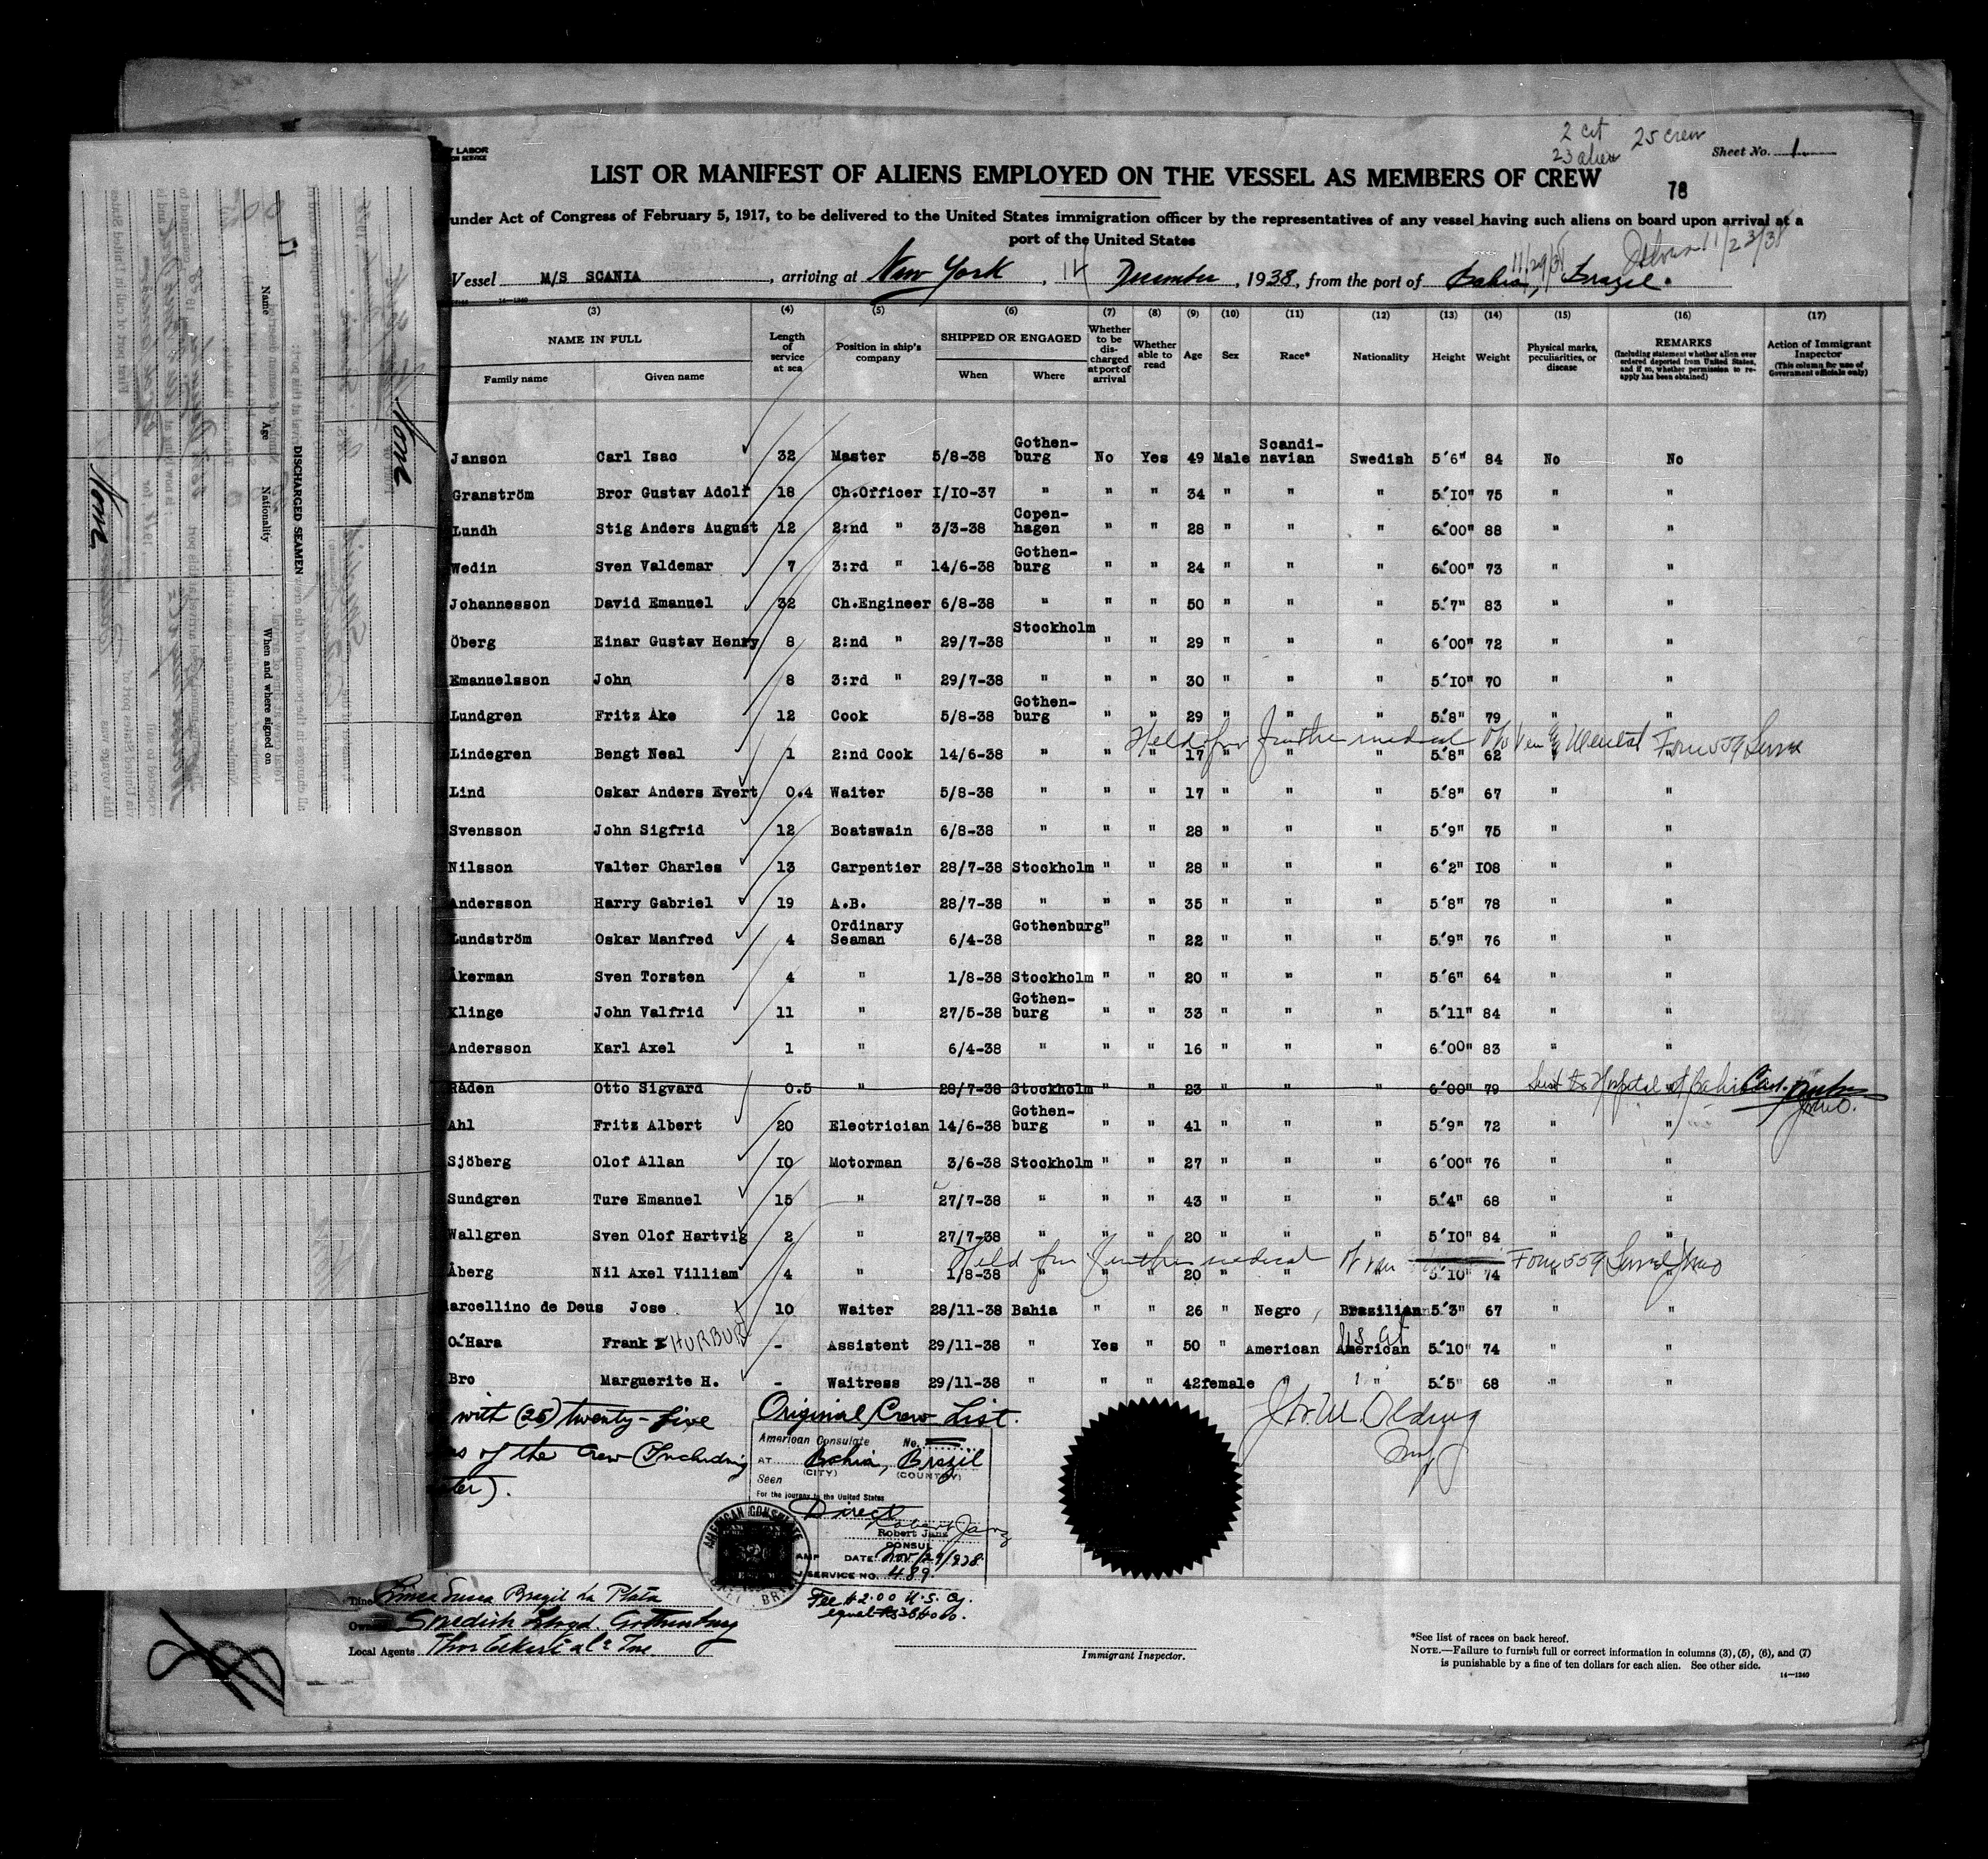 2 cit
23 alien
25 crew
Sheet No. 1
Y LABOR
ON SERVICE
LIST OR MANIFEST OF ALIENS EMPLOYED ON THE VESSEL AS MEMBERS OF CREW
78
under Act of Congress of February 5, 1917, to be delivered to the United States immigration officer by the representatives of any vessel having such aliens on board upon arrival at a
port of the United States
11/23/38
11/29/38
Vessel M/S SCANIA, arriving at New York, 14 December, 1938, from the port of Bahia, Brazil.
14-1240
(3) (4) (5) (6) (7) (8) (9) (10) (11) (12) (13) (14) (15) (16) (17)
NAME IN FULL
Family name Given name
Length of service at sea
Position in ship's company
SHIPPED OR ENGAGED
When Where
Whether to be discharged at port of arrival
Whether able to read
Age Sex Race* Nationality Height Weight
Physical marks, peculiarities, or disease
REMARKS
(Including statement whether alien ever ordered deported from United States, and if so, whether permission to re-apply has been obtained)
Action of Immigrant Inspector
(This column for use of Government officials only)
Janson Carl Isac 32 Master 5/8-38 Gothen-burg No Yes 49 Male Scandi-navian Swedish 5'6" 84 No No
Granström Bror Gustav Adolf 18 Ch.Officer 1/10-37 " " " 34 " " " 5'10" 75 " "
Lundh Stig Anders August 12 2:nd " 3/3-38 Copen-hagen " " 28 " " " 6'00" 88 " "
Wedin Sven Valdemar 7 3:rd " 14/6-38 Gothen-burg " " 24 " " " 6'00" 73 " "
Johannesson David Emanuel 32 Ch.Engineer 6/8-38 " " " 50 " " " 5'7" 83 " "
Öberg Einar Gustav Henry 8 2:nd " 29/7-38 Stockholm " " 29 " " " 6'00" 72 " "
Emanuelsson John 8 3:rd " 29/7-38 " " " 30 " " " 5'10" 70 " "
Lundgren Fritz Åke 12 Cook 5/8-38 Gothen-burg " " 29 " " " 5'8" 79 " "
Held for further medical Ven & Mental Form 559 Served
Lindegren Bengt Neal 1 2:nd Cook 14/6-38 " " " 17 " " " 5'8" 62 " "
Lind Oskar Anders Evert 0.4 Waiter 5/8-38 " " " 17 " " " 5'8" 67 " "
Svensson John Sigfrid 12 Boatswain 6/8-38 " " " 28 " " " 5'9" 75 " "
Nilsson Valter Charles 13 Carpentier 28/7-38 Stockholm " " 28 " " " 6'2" 108 " "
Andersson Harry Gabriel 19 A.B. 28/7-38 " " " 35 " " " 5'8" 78 " "
Lundström Oskar Manfred 4 Ordinary Seaman 6/4-38 Gothenburg " " 22 " " " 5'9" 76 " "
Åkerman Sven Torsten 4 " 1/8-38 Stockholm " " 20 " " " 5'6" 64 " "
Klinge John Valfrid 11 " 27/5-38 Gothen-burg " " 33 " " " 5'11" 84 " "
Andersson Karl Axel 1 " 6/4-38 " " " 16 " " " 6'00" 83 " "
Råden Otto Sigvard 0.5 " 28/7-38 Stockholm " " 23 " " " 6'00" 79 Sent to Hospital at Bahia
Ahl Fritz Albert 20 Electrician 14/6-38 Gothen-burg " " 41 " " " 5'9" 72 " "
Sjöberg Olof Allan 10 Motorman 3/6-38 Stockholm " " 27 " " " 6'00" 76 " "
Sundgren Ture Emanuel 15 " 27/7-38 " " " 43 " " " 5'4" 68 " "
Wallgren Sven Olof Hartvig 2 " 27/7-38 " " " 20 " " " 5'10" 84 " "
Held for further medical Ven Form 559 Served
Åberg Nil Axel Villiam 4 " 1/8-38 " " " 20 " " " 5'10" 74 " "
Marcellino de Deus Jose 10 Waiter 28/11-38 Bahia " " 26 " Negro Brazilian 5'3" 67 " "
O'Hara Frank HURBURT - Assistent 29/11-38 " Yes " 50 " American American US Cit 5'10" 74 " "
Bro Marguerite H. - Waitress 29/11-38 " " " 42 female " " 5'5" 68 " "
with (25) twenty-five
of the crew (Including
).
Original Crew List.
American Consulate No.
AT Bahia, Brazil
(CITY) (COUNTRY)
Seen
For the journey to the United States
Direct
Robert Janz
Robert Janz
CONSUL
DATE Nov/29/938
SERVICE NO. 489
AMERICAN CONSULATE
Fee $2.00 U.S. Cy.
Jno. M. Olding
Line Linea Sueca Brazil La Plata
Owners Swedish Lloyd. Gothenburg
Local Agents Thor Eckert & Co Inc.
Immigrant Inspector.
*See list of races on back hereof.
NOTE.—Failure to furnish full or correct information in columns (3), (5), (6), and (7)
is punishable by a fine of ten dollars for each alien. See other side.
14-1240
77
None
None
DISCHARGED SEAMEN
Name Age Nationality When and where signed on